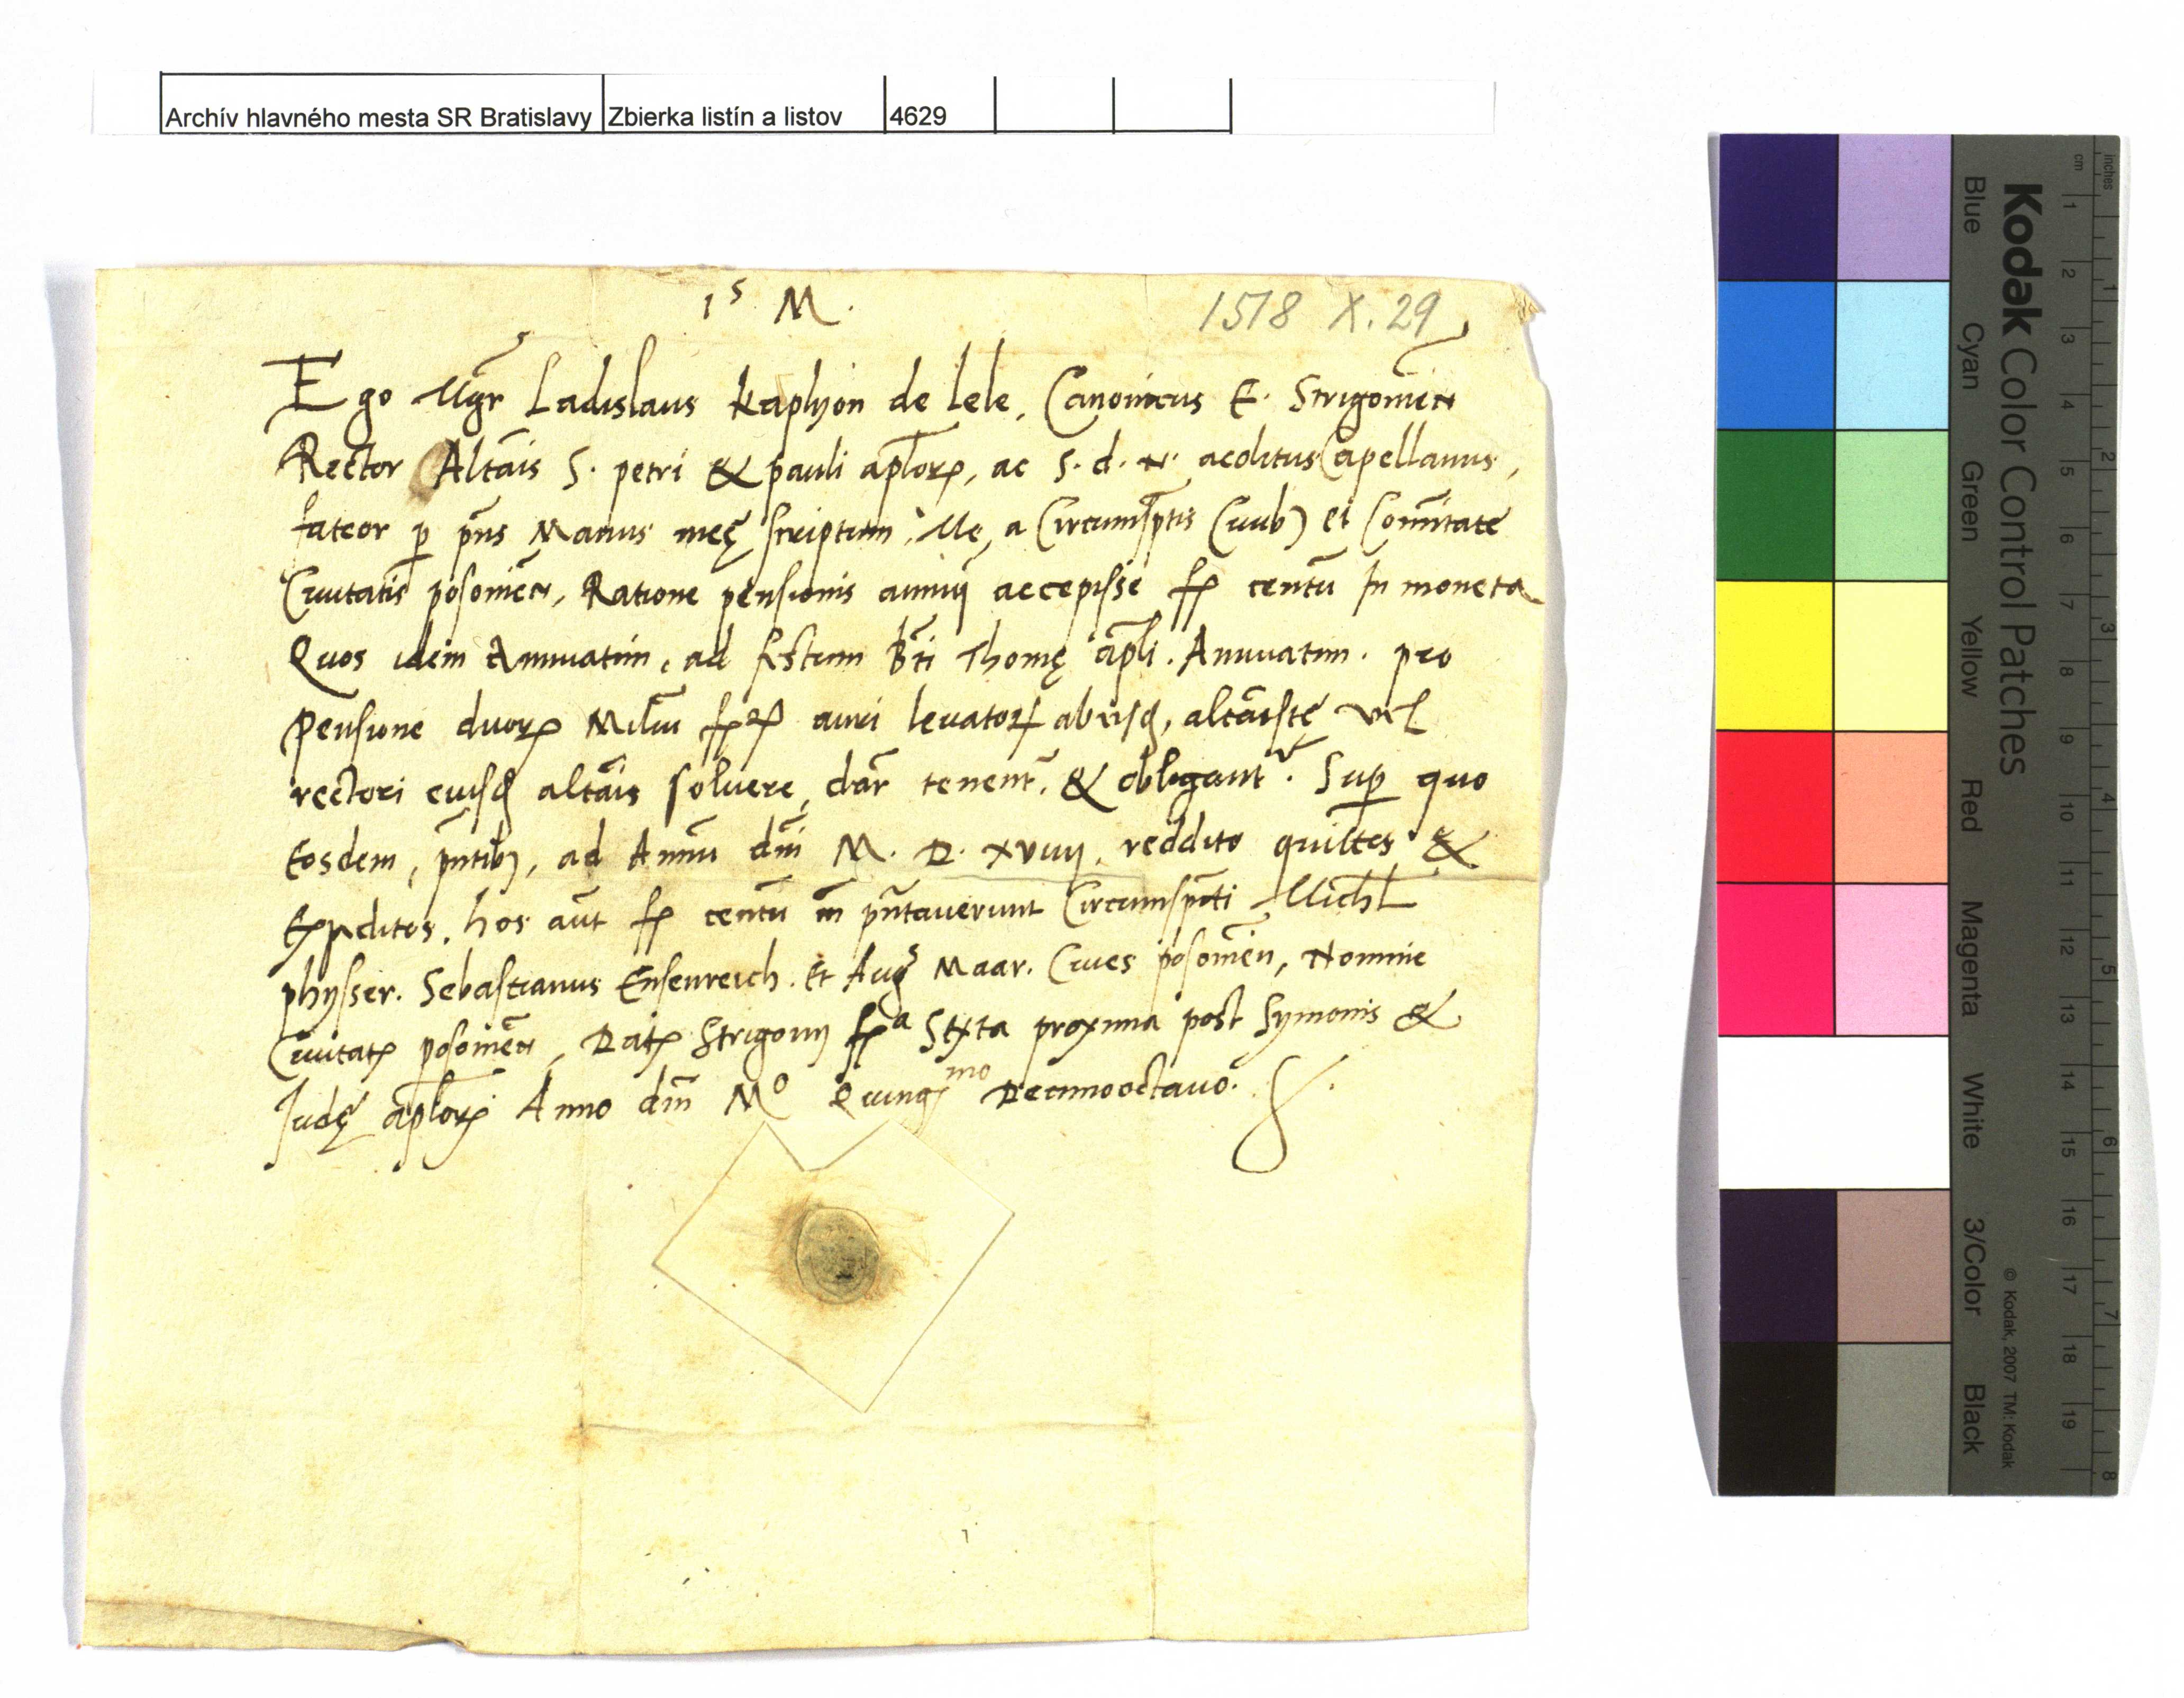 Archív hlavného mesta SR Bratislavy Zbierka listín a listov 4629
1s M.
1518 X. 29
Ego Mgr Ladislaus kaplyon de lele, Canonicus E. Strigonien
Rector Altaīs S. petri & pauli aplorꝝ, ac S. d. N. acolitus Capellanus,
fateor ꝑ pn̄s Manus meę scriptum, Me, a Circumsp̄tis Ciuibꝫ et Com̄itate
Ciuitatis posonien̄, Ratione pensionis annuij accepisse ff centū In moneta
Quos idem Annuatim, ad festum Bt̄i Thomę ap̄li. Annuatim. pro
pensione duorꝝ Miliū ff auri leuatorꝝ ab eisdꝫ, altāistę vel
rectori eiusdꝫ altāis soluere, dār tenent̄. & obligant̄. Suꝑ quo
Eosdem, pn̄tibꝫ, ad Annū dn̄i M. D. xviiij. reddito quittos &
Expeditos. hos aūt ff centū m̄ pn̄tauerunt Circumsp̄cti Michl
physser. Sebastianus Ensenreich. Et Augs Maar. Ciues posonien̄, Nomine
Ciuitatꝭ posonien̄, Datꝭ Strigonij fꝭa Sexta proxima post Symonis &
Judę aplorꝝ Anno dn̄i Mo Quingꝭmo Decimooctauo.
Kodak Color Control Patches
Blue Cyan Green Yellow Red Magenta White 3/Color Black
inches 1 2 3 4 5 6 7 8
cm 1 2 3 4 5 6 7 8 9 10 11 12 13 14 15 16 17 18 19
© Kodak, 2007 TM: Kodak